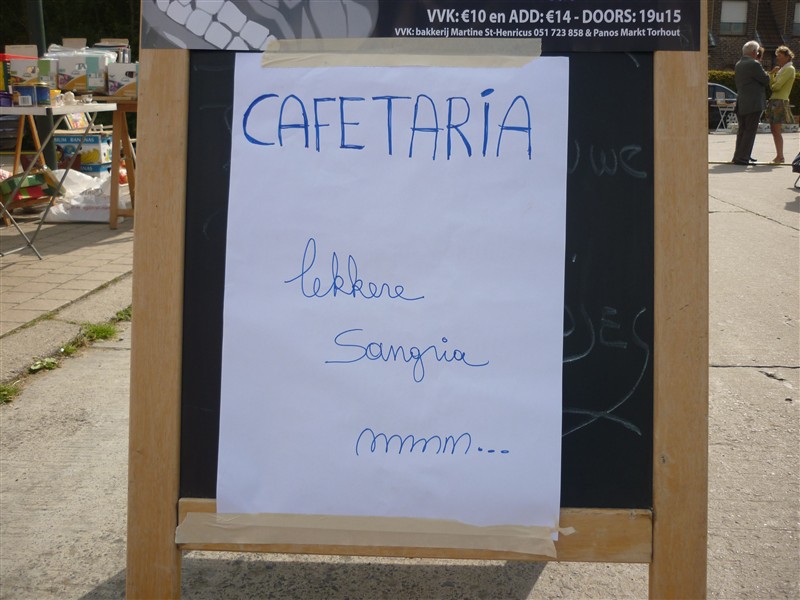 VVK: €10 en ADD: €14 - DOORS: 19u15
VVK: bakkerij Martine St-Henricus 051 723 858 & Panos Markt Torhout
CAFETARIA
lekkere
Sangria
mmmm...